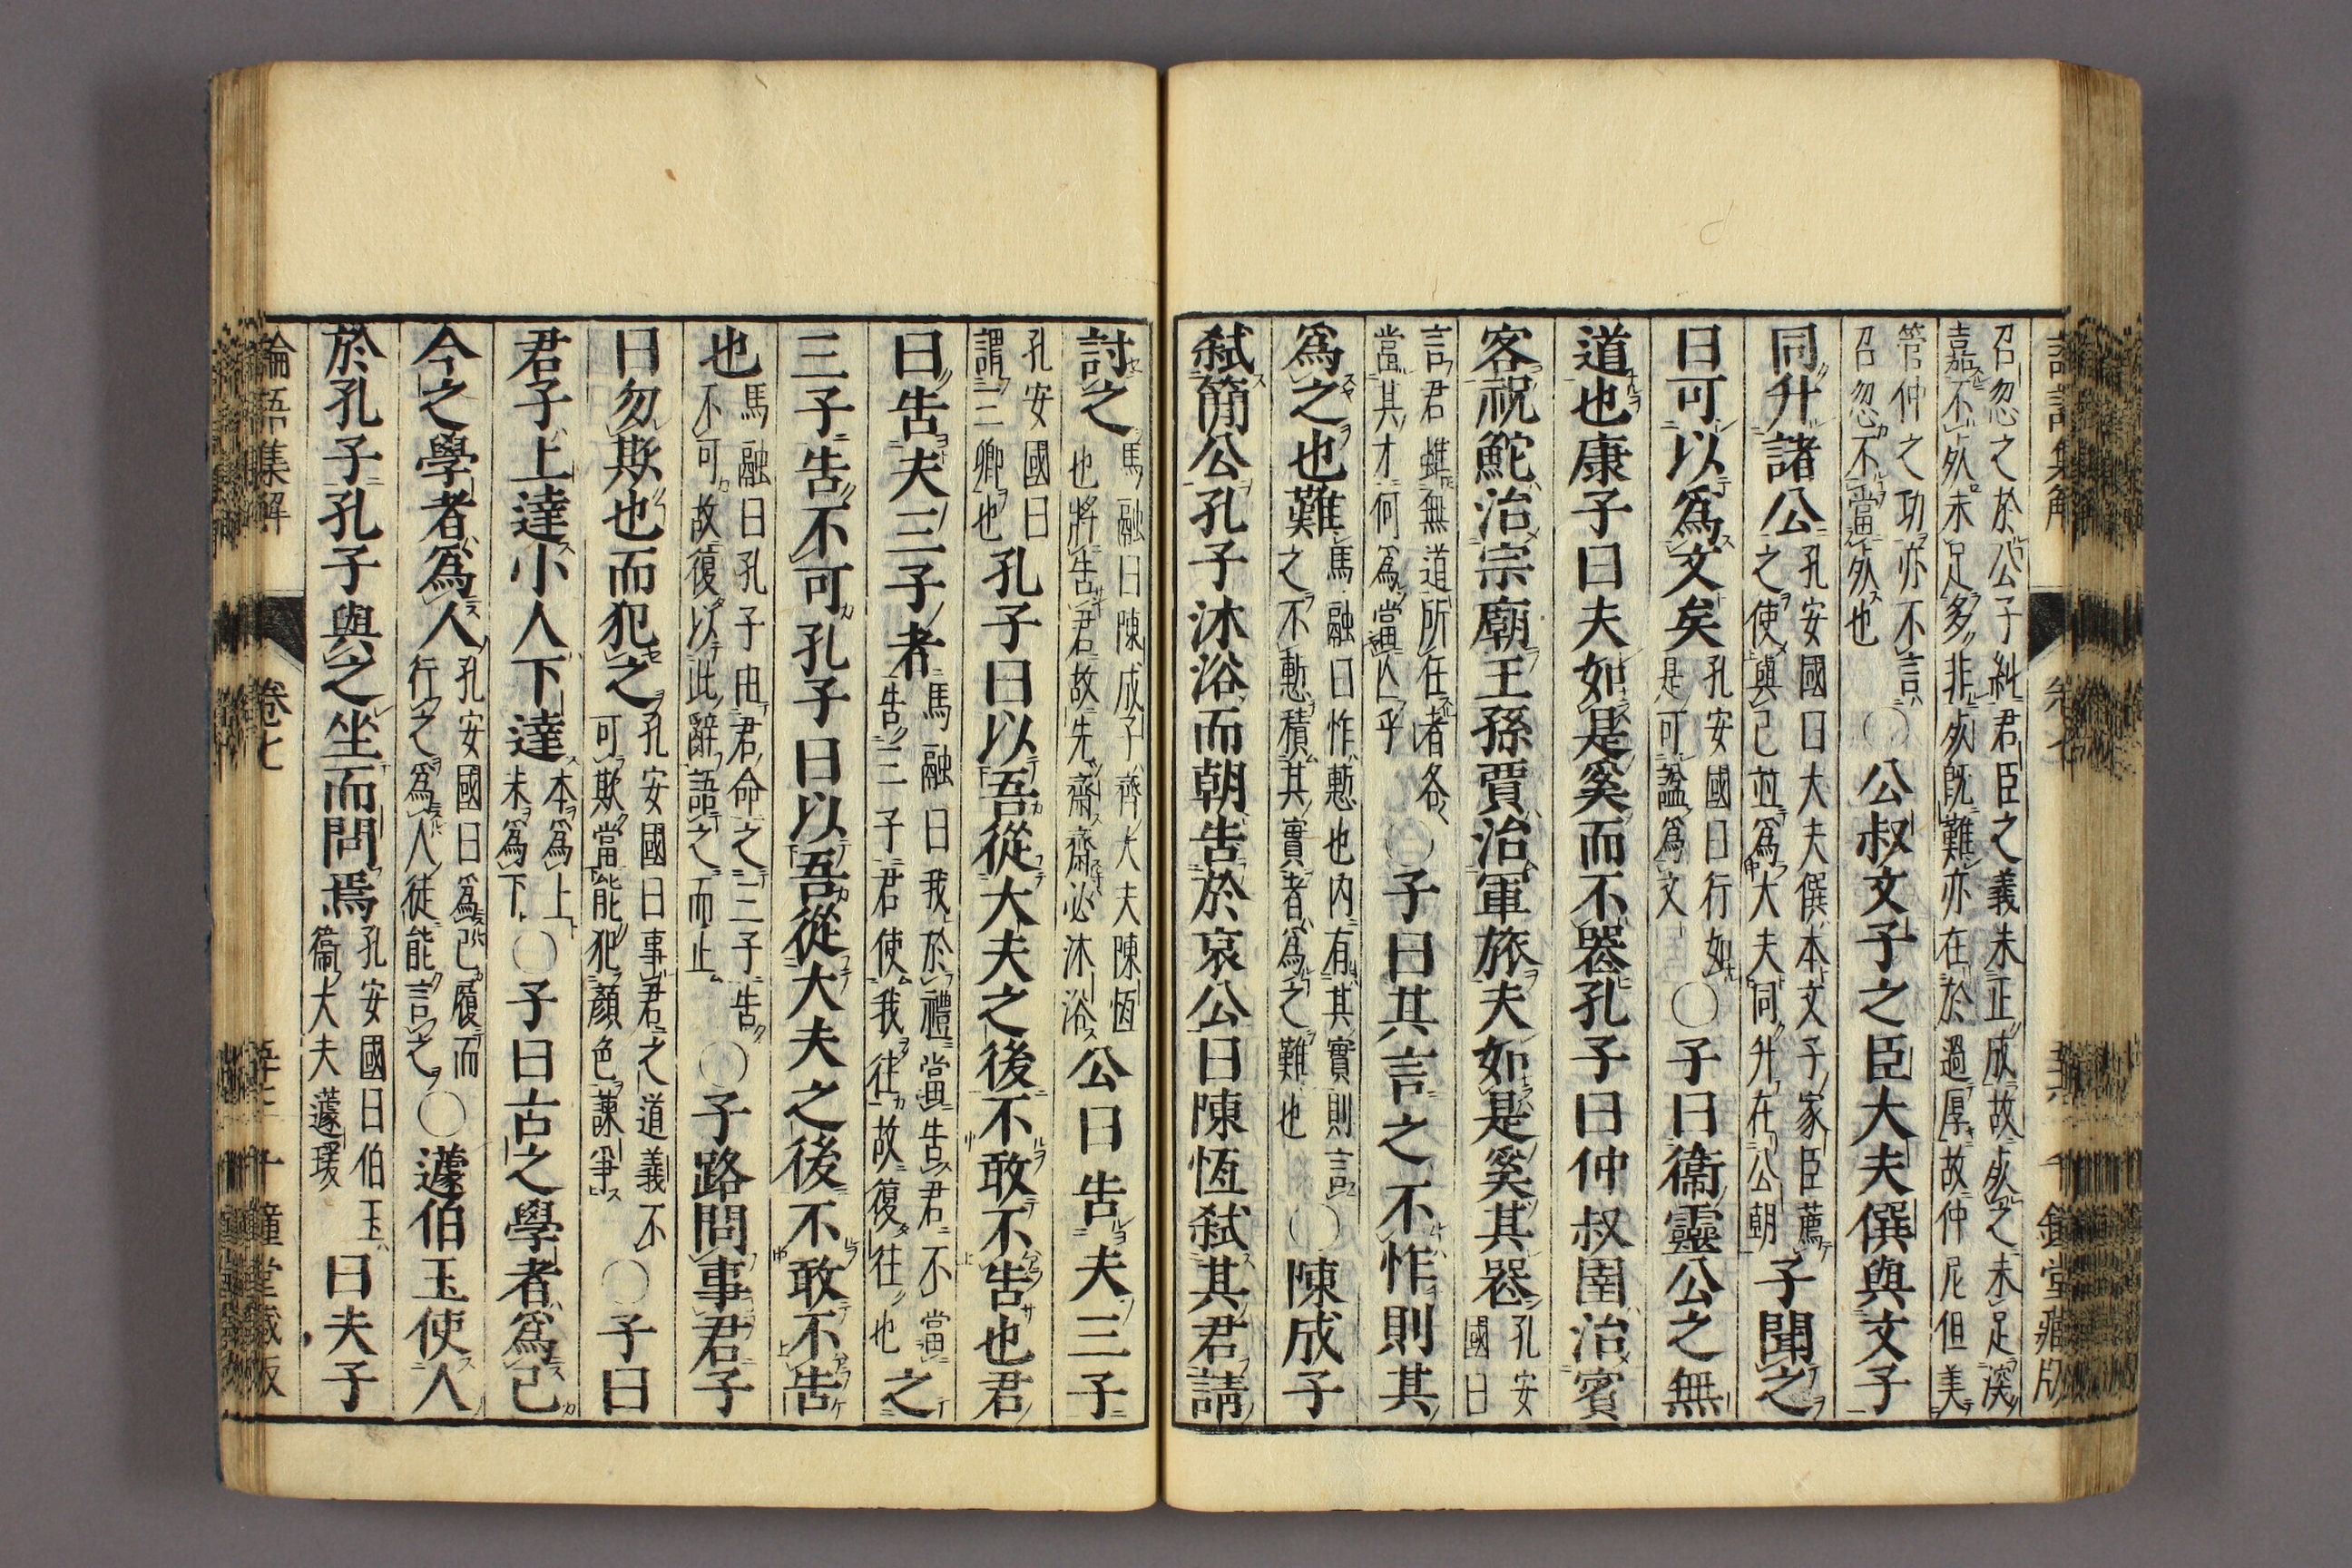 召忽之於公子糾君臣之義未正成故死之未足深
嘉不死未足多非死既難亦在於過厚故仲尼但美
管仲之功亦不言
召忽不當死也
○公叔文子之臣大夫僎與文子
同升諸公
孔安國曰大夫僎本文子家臣薦
之使與己並爲大夫同升在公朝
子聞之
曰可以爲文矣
孔安國曰行如
是可諡爲文
○子曰衞靈公之無
道也康子曰夫如是奚而不喪孔子曰仲叔圉治賓
客祝鮀治宗廟王孫賈治軍旅夫如是奚其喪
孔安
國曰
言君雖無道所任者各
當其才何爲當亡乎
○子曰其言之不怍則其
爲之也難
馬融曰怍慙也内有其實則言
之不慙積其實者爲之難也
○陳成子
弑簡公孔子沐浴而朝告於哀公曰陳恆弑其君請
討之
馬融曰陳成子齊大夫陳恆
也將告君故先齋齋必沐浴
公曰告夫三子
孔安國曰
謂三卿也
孔子曰以吾從大夫之後不敢不告也君
曰告夫三子者
馬融曰我於禮當告君不當
告三子君使我往故復往也
之
三子告不可孔子曰以吾從大夫之後不敢不告
也
馬融曰孔子由君命之三子告
不可故復以此辭語之而止
○子路問事君子
曰勿欺也而犯之
孔安國曰事君之道義不
可欺當能犯顔色諫爭
○子曰
君子上達小人下達
本爲上
末爲下
○子曰古之學者爲己
今之學者爲人
孔安國曰爲己履而
行之爲人徒能言之
○蘧伯玉使人
於孔子孔子與之坐而問焉
孔安國曰伯玉
衞大夫蘧瑗
曰夫子
論語集解
卷七
千鍾堂藏版